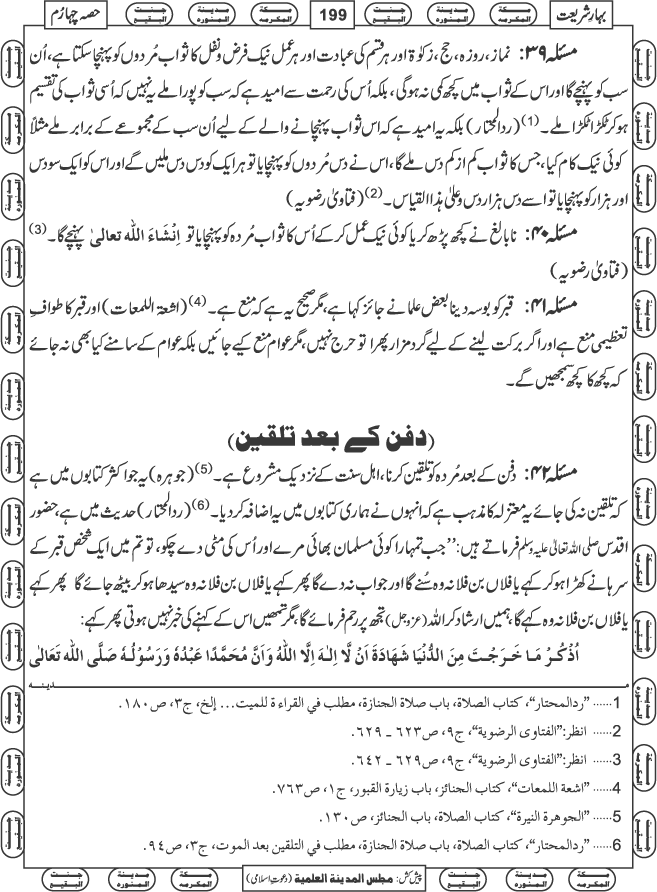 بہارِشریعت
199
حصہ چہارم
مسئلہ ۳۹: نماز، روزہ، حج، زکوٰۃ اور ہر قسم کی عبادت اور ہر عمل نیک فرض و نفل کا ثواب مُردوں کو پہنچا سکتا ہے، اُن
سب کو پہنچے گا اور اس کے ثواب میں کچھ کمی نہ ہوگی، بلکہ اُس کی رحمت سے امید ہے کہ سب کو پورا ملے یہ نہیں کہ اُسی ثواب کی تقسیم
ہو کر ٹکڑا ٹکڑا ملے۔(1) (ردالمحتار) بلکہ یہ امید ہے کہ اس ثواب پہنچانے والے کے لیے اُن سب کے مجموعے کے برابر ملے مثلاً
کوئی نیک کام کیا، جس کا ثواب کم از کم دس ملے گا، اس نے دس مُردوں کو پہنچایا تو ہر ایک کو دس دس ملیں گے اور اس کو ایک سو دس
اور ہزار کو پہنچایا تو اسے دس ہزار دس وعلیٰ ہذا القیاس۔(2) (فتاویٰ رضویہ)
مسئلہ ۴۰: نابالغ نے کچھ پڑھ کر یا کوئی نیک عمل کر کے اُس کا ثواب مُردہ کو پہنچایا تو اِنْشَاءَ اللہ تعالیٰ پہنچے گا۔(3)
(فتاویٰ رضویہ)
مسئلہ ۴۱: قبر کو بوسہ دینا بعض علما نے جائز کہا ہے، مگر صحیح یہ ہے کہ منع ہے۔(4) (اشعۃ اللمعات) اور قبر کا طوافِ
تعظیمی منع ہے اور اگر برکت لینے کے لیے گردمزار پھرا تو حرج نہیں، مگر عوام منع کیے جائیں بلکہ عوام کے سامنے کیا بھی نہ جائے
کہ کچھ کا کچھ سمجھیں گے۔
(دفن کے بعد تلقین)
مسئلہ ۴۲: دفن کے بعد مُردہ کو تلقین کرنا، اہل سنت کے نزدیک مشروع ہے۔(5) (جوہرہ) یہ جو اکثر کتابوں میں ہے
کہ تلقین نہ کی جائے یہ معتزلہ کا مذہب ہے کہ انہوں نے ہماری کتابوں میں یہ اضافہ کر دیا۔(6) (ردالمحتار) حدیث میں ہے، حضور
اقدس صلی اللہ تعالیٰ علیہ وسلم فرماتے ہیں: ’’جب تمہارا کوئی مسلمان بھائی مرے اور اُس کی مٹی دے چکو، تو تم میں ایک شخص قبر کے
سرہانے کھڑا ہو کر کہے یا فلاں بن فلانہ وہ سُنے گا اور جواب نہ دے گا پھر کہے یا فلاں بن فلانہ وہ سیدھا ہو کر بیٹھ جائے گا پھر کہے
یا فلاں بن فلانہ وہ کہے گا، ہمیں ارشاد کر اللہ (عزوجل) تجھ پر رحم فرمائے گا، مگر تمھیں اس کے کہنے کی خبر نہیں ہوتی پھر کہے:
اُذْکُرْ مَا خَرَجْتَ مِنَ الدُّنْیَا شَھَادَۃَ اَنْ لَّا اِلٰہَ اِلَّا اللہُ وَاَنَّ مُحَمَّدًا عَبْدُہٗ وَرَسُوْلُہٗ صَلَّی اللہ تَعَالٰی
1...... ”ردالمحتار“، کتاب الصلاۃ، باب صلاۃ الجنازۃ، مطلب في القراءۃ للمیت... إلخ، ج۳، ص۱۸۰.
2...... انظر:”الفتاوی الرضویۃ“، ج۹، ص۶۲۳ ـ ۶۲۹.
3...... انظر:”الفتاوی الرضویۃ“، ج۹، ص۶۲۹ ـ ۶۴۲.
4...... ”اشعۃ اللمعات“، کتاب الجنائز، باب زیارۃ القبور، ج۱، ص۷۶۳.
5...... ”الجوھرۃ النیرۃ“، کتاب الصلاۃ، باب الجنائز، ص۱۳۰.
6...... ”ردالمحتار“، کتاب الصلاۃ، باب صلاۃ الجنازۃ، مطلب في التلقین بعد الموت، ج۳، ص۹۴.
پیش کش: مجلس المدینۃ العلمیۃ (دعوتِ اسلامی)